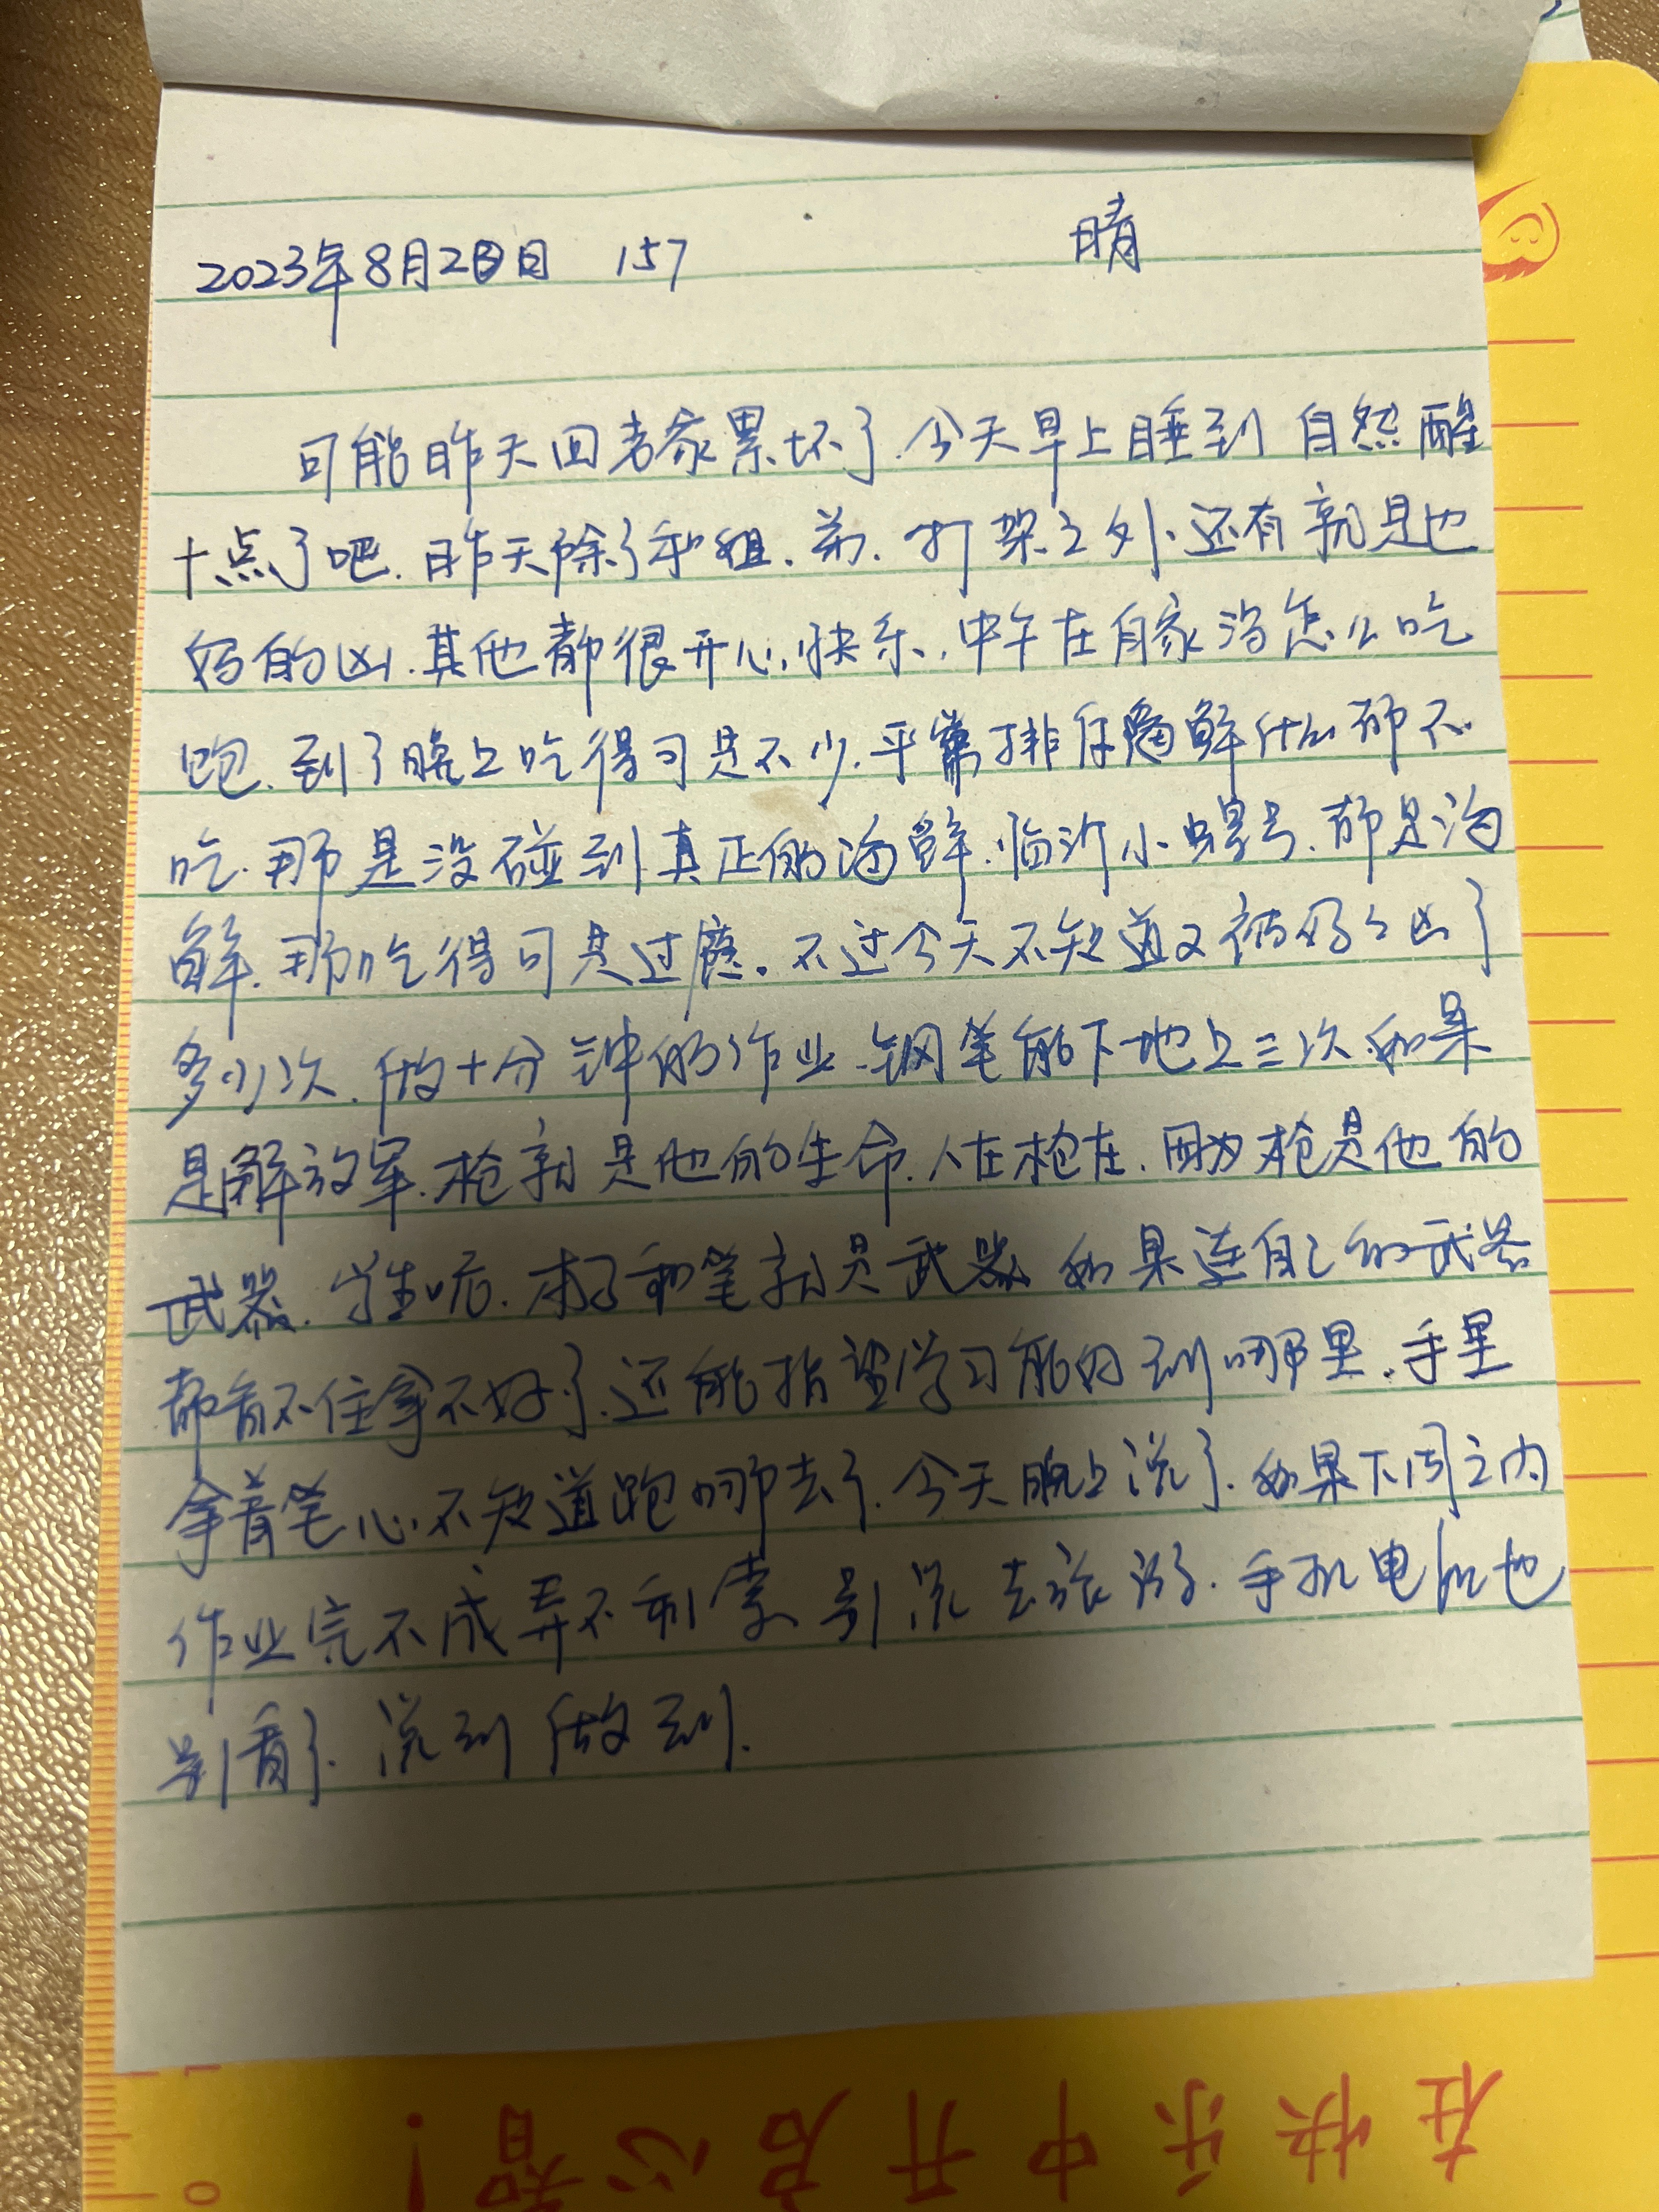 2023年8月20日 157 晴
可能昨天回老家累坏了.今天早上睡到自然醒
十点了吧.昨天除了和姐.弟.打架之外.还有就是也
妈的凶.其他都很开心,快乐,中午在自家没怎么吃
饱.到了晚上吃得可是不少.平常排斥海鲜什么都不
吃.那是没碰到真正的海鲜.临沂小螺号.都是海
鲜.那吃得可是过瘾。不过今天不知道又被妈妈凶了
多少次.做十分钟的作业.钢笔能下地上三次.如果
是解放军.枪就是他的生命.人在枪在.因为枪是他的
武器.学生呢.本子和笔就是武器 如果连自己的武器
都看不住拿不好了.还能指望学习能好到哪里.手里
拿着笔心不知道跑哪去了.今天晚上说了.如果下周之内
作业完不成弄不利索 别说去旅游.手机电脑也
别看了.说到做到.
在快乐中开启心智!
1
0